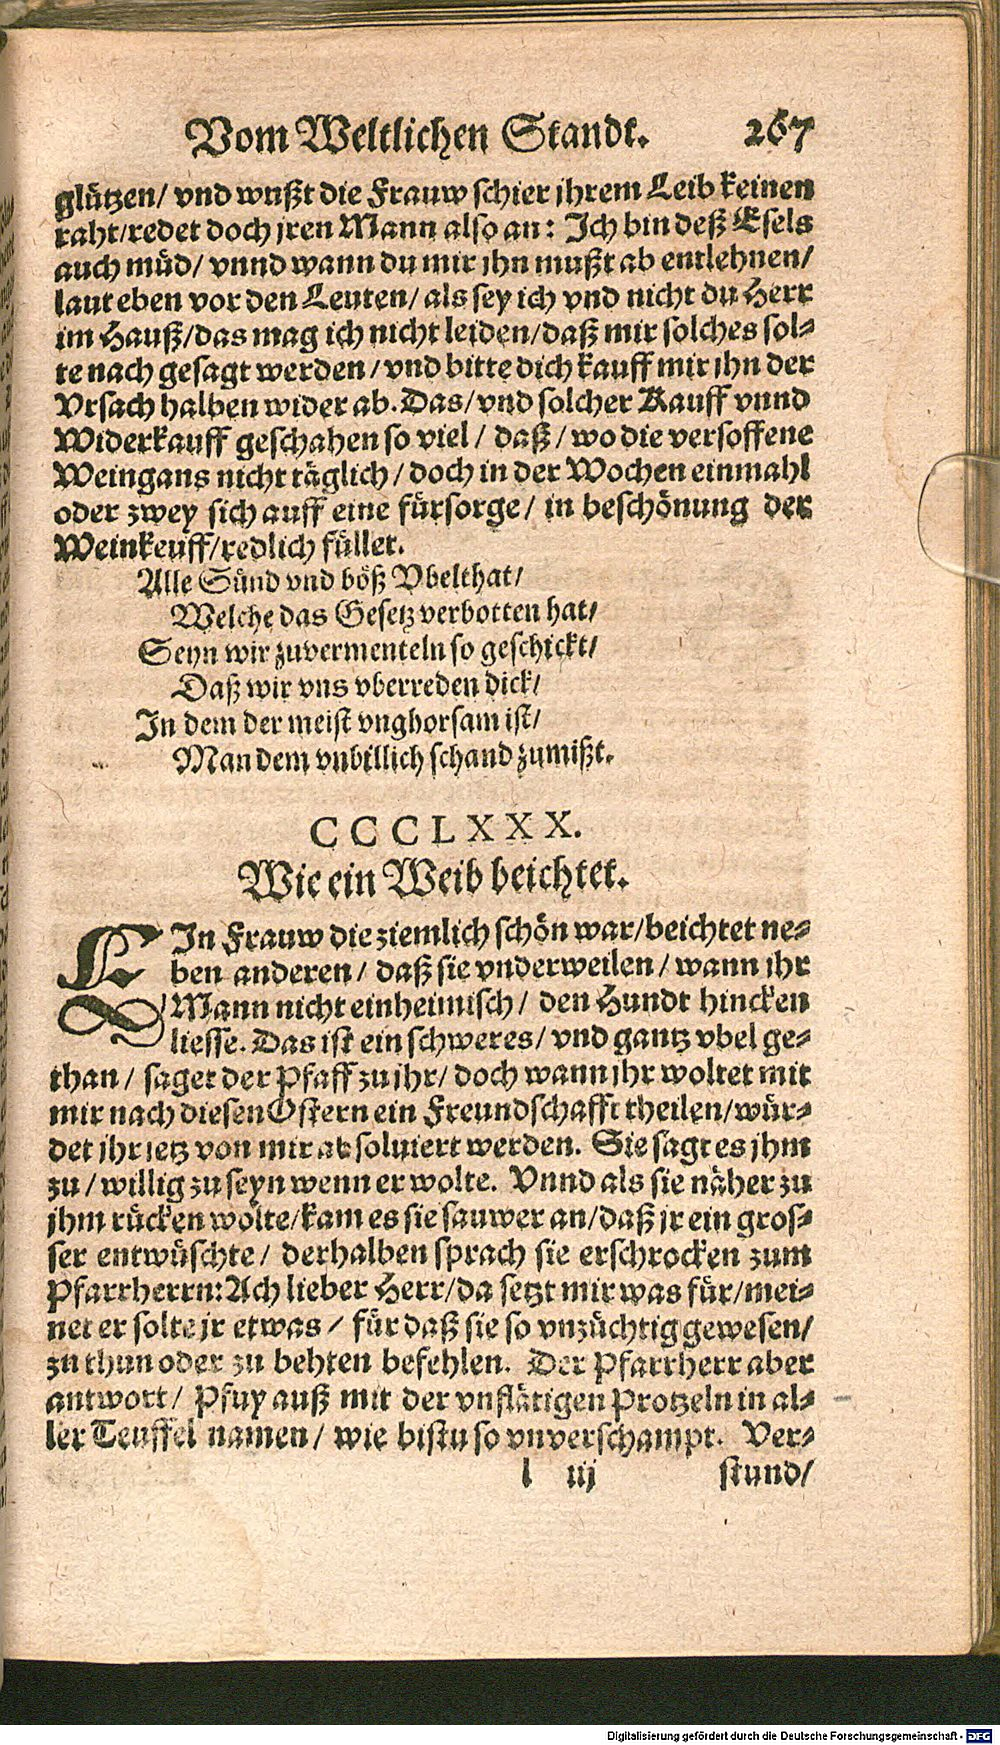 Vom Weltlichen Standt. 267
glützen/ vnd wußt die Frauw schier ihrem Leib keinen
raht/redet doch jren Mann also an: Ich bin deß Esels
auch müd/ vnnd wann du mir ihn mußt ab entlehnen/
laut eben vor den Leuten/ als sey ich vnd nicht du Herr
im Hauß/das mag ich nicht leiden/daß mir solches sol-
te nach gesagt werden/vnd bitte dich kauff mir ihn der
Vrsach halben wider ab. Das/vnd solcher Kauff vnnd
Widerkauff geschahen so viel/ daß/wo die versoffene
Weingans nicht täglich/ doch in der Wochen einmahl
oder zwey sich auff eine fürsorge/ in beschönung der
Weinkeuff/redlich füllet.
Alle Sünd vnd böß Vbelthat/
Welche das Gesetz verbotten hat/
Seyn wir zuvermenteln so geschickt/
Daß wir vns vberreden dick/
In dem der meist vnghorsam ist/
Man dem vnbillich schand zumißt.
CCCLXXX.
Wie ein Weib beichtet.
EIn Frauw die ziemlich schön war/beichtet ne-
ben anderen/ daß sie vnderweilen/ wann ihr
Mann nicht einheimisch/ den Hundt hincken
liesse. Das ist ein schweres/ vnd gantz vbel ge-
than/ saget der Pfaff zu ihr/ doch wann ihr woltet mit
mir nach diesen Ostern ein Freundschafft theilen/wür-
det ihr jetz von mir absoluiert werden. Sie sagt es ihm
zu/willig zu seyn wenn er wolte. Vnnd als sie näher zu
ihm rücken wolte/kam es sie sauwer an/daß jr ein gros-
ser entwüschte/ derhalben sprach sie erschrocken zum
Pfarrherrn: Ach lieber Herr/da setzt mir was für/mei-
net er solte jr etwas/ für daß sie so vnzüchtig gewesen/
zu thun oder zu behten befehlen. Der Pfarrherr aber
antwort/ Pfuy auß mit der vnflätigen Protzeln in al-
ler Teuffel namen/ wie bistu so vnverschampt. Ver-
l iij stund/
Digitalisierung gefördert durch die Deutsche Forschungsgemeinschaft - DFG